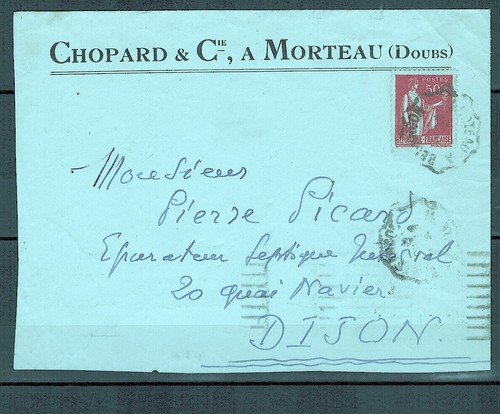 CHOPARD & CIE, A MORTEAU (DOUBS)
POSTES
50c
Monsieur
Pierre Picard
Epurateur Septique Intégral
20 quai Navier
DIJON